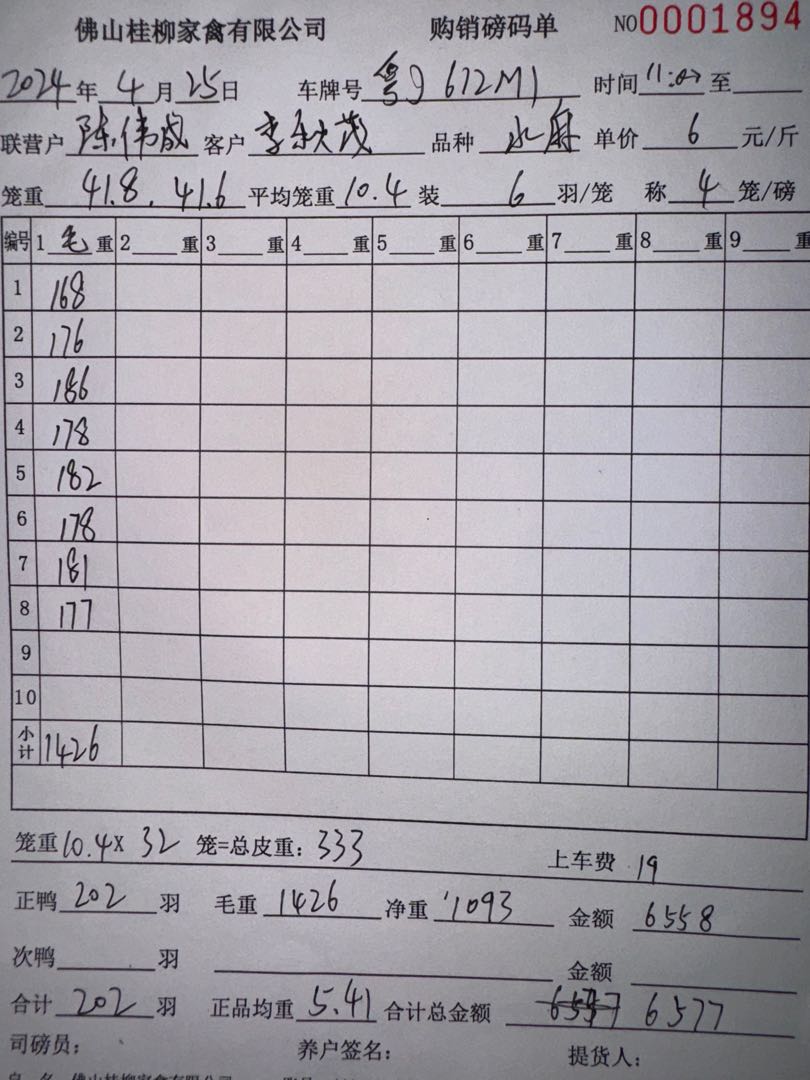 佛山桂柳家禽有限公司 购销磅码单 NO0001894
2024年 4月 25日 车牌号 粤J 672M1 时间 11:07 至
联营户 陈伟成 客户 李秋茂 品种 水鸭 单价 6 元/斤
笼重 41.8. 41.6 平均笼重 10.4 装 6 羽/笼 称 4 笼/磅
编号 1 毛 重 2 重 3 重 4 重 5 重 6 重 7 重 8 重 9 重
1 168
2 176
3 186
4 178
5 182
6 178
7 181
8 177
9
10
小计 1426
笼重 10.4 X 32 笼=总皮重: 333 上车费 19
正鸭 202 羽 毛重 1426 净重 1093 金额 6558
次鸭 羽 金额
合计 202 羽 正品均重 5.41 合计总金额 6577
司磅员: 养户签名: 提货人: